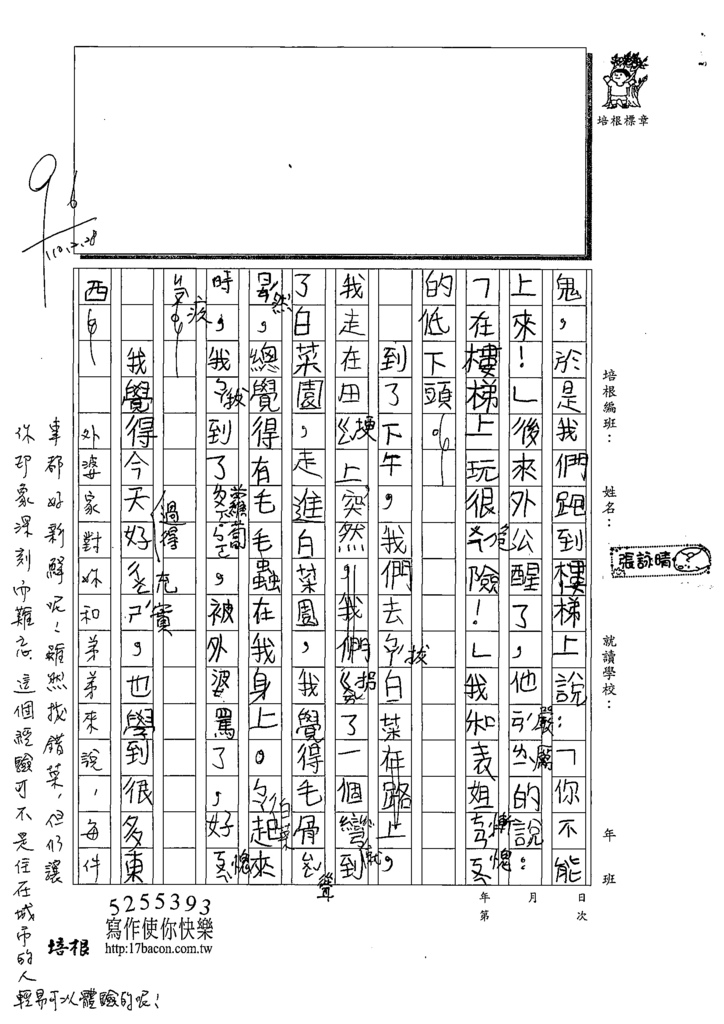 培根標章
培根編班：
姓名：
張詠晴
就讀學校：
年 班
鬼，於是我們跑到樓梯上說：「你不能
上來！」後來外公醒了，他ㄧㄢˊ嚴ㄌㄧˋ厲的說：
「在樓梯上玩很危險！」我和表姐慚愧
的低下頭。
到了下午，我們去ㄅㄚˊ拔白菜在路上，
我走在田梗上突然，我們拐了一個彎到就
了白菜園，走進白菜園，我覺得毛骨聳
然，總覺得有毛毛蟲在我身上。白菜起來
時，我ㄅㄚˊ拔到了蘿蔔，被外婆罵了，好愧
疚。
我覺得今天過得好充實，也學到很多東
西。
外婆家對妳和弟弟來說，每件
事都好新鮮呢！雖然找錯菜，但仍讓
你印象深刻而難忘。這個經驗可不是住在城市的人
輕易可以體驗的呢！
96
110.2.28
年 月 日
第 次
5255393
寫作使你快樂
培根 http:17bacon.com.tw